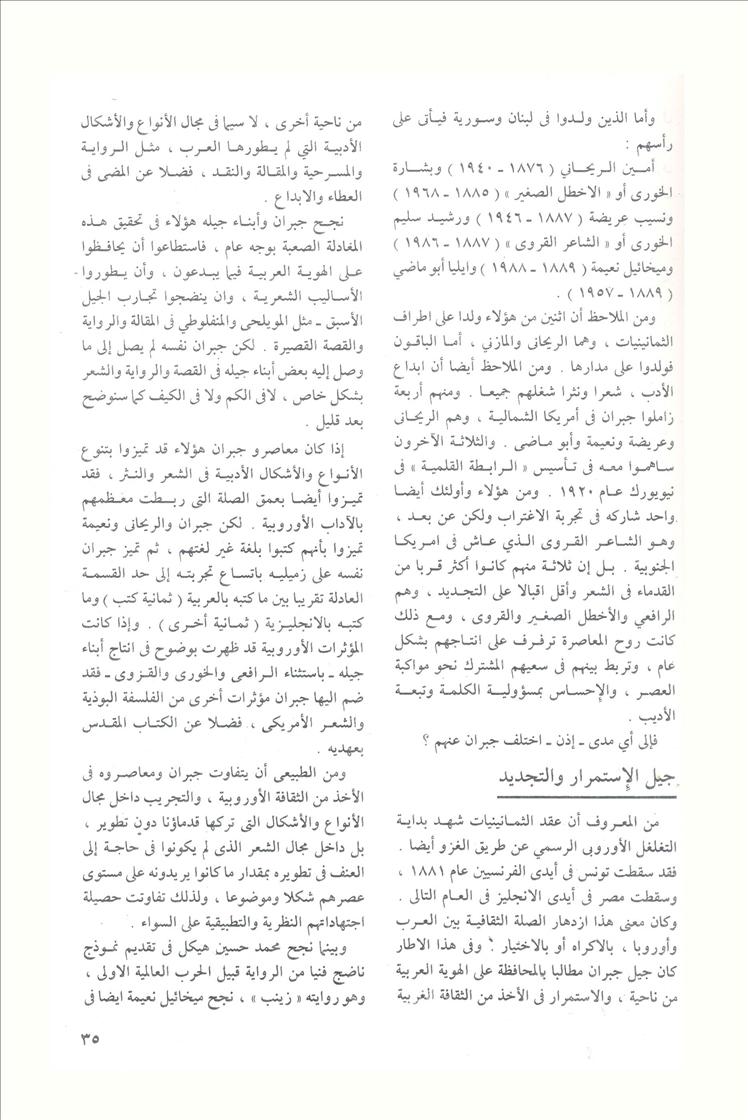 وأما الذين ولدوا فى لبنان وسورية فيأتى على
رأسهم :
أمين الريحاني ( ١٨٧٦ ـ ١٩٤٠ ) وبشارة
الخورى أو « الاخطل الصغير » ( ١٨٨٥ ـ ١٩٦٨ )
ونسيب عريضة ( ١٨٨٧ ـ ١٩٤٦ ) ورشيد سليم
الخورى أو « الشاعر القروى » ( ١٨٨٧ ـ ١٩٨٦ )
وميخائيل نعيمة ( ١٨٨٩ ـ ١٩٨٨ ) وايليا أبو ماضي
( ١٨٨٩ ـ ١٩٥٧ ) .
ومن الملاحظ أن اثنين من هؤلاء ولدا على اطراف
الثمانينيات ، وهما الريحانى والمازني ، أما الباقون
فولدوا على مدارها . ومن الملاحظ أيضا أن ابداع
الأدب ، شعرا ونثرا شغلهم جميعا . ومنهم أربعة
زاملوا جبران فى أمريكا الشمالية ، وهم الريحانى
وعريضة ونعيمة وأبو ماضى . والثلاثة الآخرون
ساهموا معه فى تأسيس « الرابطة القلمية » فى
نيويورك عام ١٩٢٠ . ومن هؤلاء وأولئك أيضا
واحد شاركه فى تجربة الاغتراب ولكن عن بعد ،
وهو الشاعر القروى الذي عاش فى امريكا
الجنوبية . بل إن ثلاثة منهم كانوا أكثر قربا من
القدماء فى الشعر وأقل اقبالا على التجديد ، وهم
الرافعي والأخطل الصغير والقروى ، ومع ذلك
كانت روح المعاصرة ترفرف على انتاجهم بشكل
عام ، وتربط بينهم فى سعيهم المشترك نحو مواكبة
العصر ، والإحساس بمسؤولية الكلمة وتبعة
الأديب .
فإلى أي مدى ـ إذن ـ اختلف جبران عنهم ؟
جيل الإستمرار والتجديد
من المعروف أن عقد الثمانينيات شهد بداية
التغلغل الأوروبى الرسمي عن طريق الغزو أيضا .
فقد سقطت تونس فى أيدى الفرنسيين عام ١٨٨١ ،
وسقطت مصر فى أيدى الانجليز فى العام التالى .
وكان معنى هذا ازدهار الصلة الثقافية بين العرب
وأوروبا ، بالاكراه أو بالاختيار . وفى هذا الاطار
كان جيل جبران مطالبا بالمحافظة على الهوية العربية
من ناحية ، والاستمرار فى الأخذ من الثقافة الغربية
من ناحية أخرى ، لا سيما فى مجال الأنواع والأشكال
الأدبية التي لم يطورها العرب ، مثل الرواية
والمسرحية والمقالة والنقد ، فضلا عن المضى فى
العطاء والابداع .
نجح جبران وأبناء جيله هؤلاء فى تحقيق هذه
المعادلة الصعبة بوجه عام ، فاستطاعوا أن يحافظوا
على الهوية العربية فيما يبدعون ، وأن يطوروا
الأساليب الشعرية ، وان ينضجوا تجارب الجيل
الأسبق ـ مثل المويلحى والمنفلوطي فى المقالة والرواية
والقصة القصيرة . لكن جبران نفسه لم يصل إلى ما
وصل إليه بعض أبناء جيله فى القصة والرواية والشعر
بشكل خاص ، لافى الكم ولا فى الكيف كما سنوضح
بعد قليل .
إذا كان معاصرو جبران هؤلاء قد تميزوا بتنوع
الأنواع والأشكال الأدبية فى الشعر والنثر ، فقد
تميزوا أيضا بعمق الصلة التى ربطت معظمهم
بالآداب الأوروبية . لكن جبران والريحانى ونعيمة
تميزوا بأنهم كتبوا بلغة غير لغتهم ، ثم تميز جبران
نفسه على زميليه باتساع تجربته إلى حد القسمة
العادلة تقريبا بين ما كتبه بالعربية ( ثمانية كتب ) وما
كتبه بالانجليزية ( ثمانية أخرى ) . وإذا كانت
المؤثرات الأوروبية قد ظهرت بوضوح فى انتاج أبناء
جيله ـ باستثناء الرافعى والخورى والقروى ـ فقد
ضم اليها جبران مؤثرات أخرى من الفلسفة البوذية
والشعر الأمريكى ، فضلا عن الكتاب المقدس
بعهديه .
ومن الطبيعى أن يتفاوت جبران ومعاصروه فى
الأخذ من الثقافة الأوروبية ، والتجريب داخل مجال
الأنواع والأشكال التى تركها قدماؤنا دون تطوير ،
بل داخل مجال الشعر الذى لم يكونوا فى حاجة إلى
العنف فى تطويره بمقدار ما كانوا يريدونه على مستوى
عصرهم شكلا وموضوعا ، ولذلك تفاوتت حصيلة
اجتهاداتهم النظرية والتطبيقية على السواء .
وبينما نجح محمد حسين هيكل فى تقديم نموذج
ناضج فنيا من الرواية قبيل الحرب العالمية الاولى ،
وهو روايته « زينب » ، نجح ميخائيل نعيمة ايضا فى
٣٥